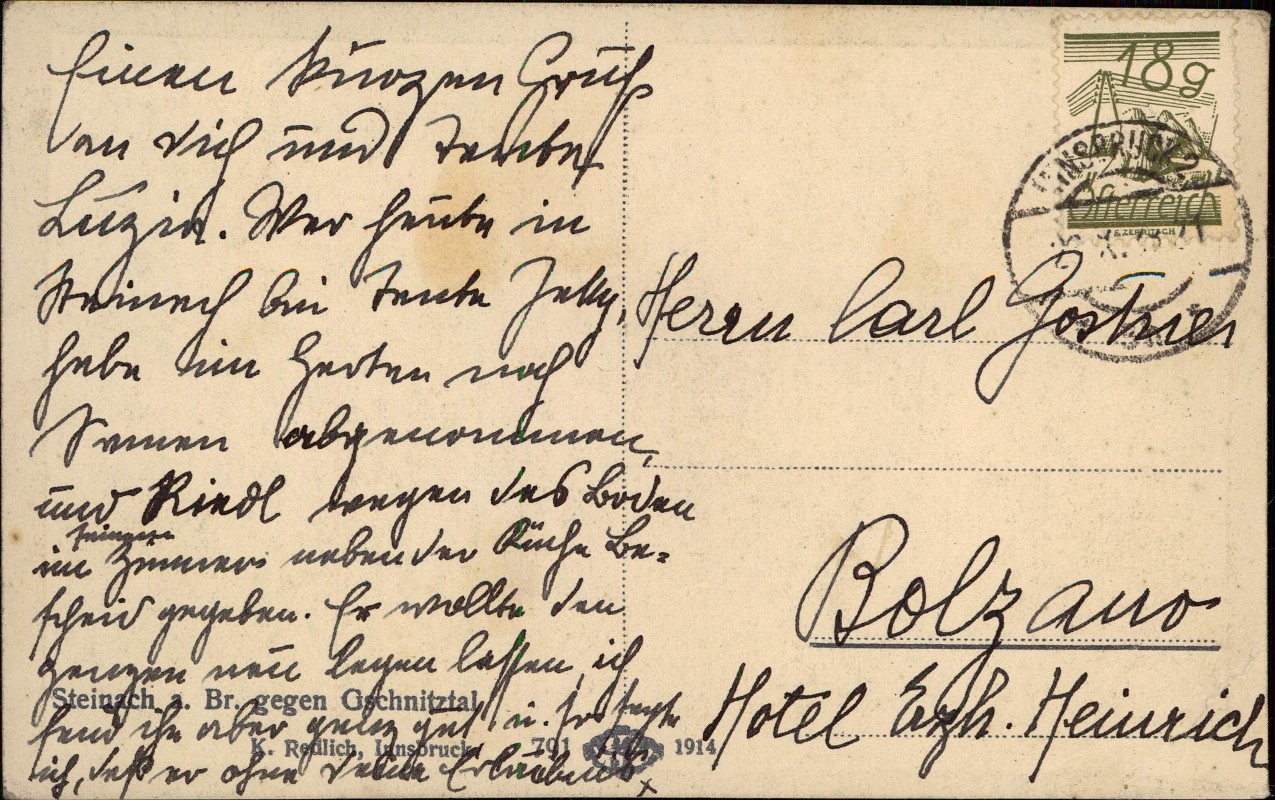 Einen kurzen Gruß
an dich und Tante
Luzia. War heute in
Steinach bei Tante Jelly,
habe im Garten noch
Samen abgenommen,
und Riedl wegen des Boden
im Zimmer neben der Küche Be-
scheid gegeben. Er wollte den
ganzen neu legen lassen, ich
fand ihn aber ganz gut u. so sagte
ich, daß er ohne deine Erlaubnis
Steinach a. Br. gegen Gschnitztal
K. Redlich, Innsbruck 791 1914
18g
Österreich
E. ZERRITSCH
INNSBRUCK 2
Herrn Carl Gostner
Bolzano
Hotel Erzh. Heinrich